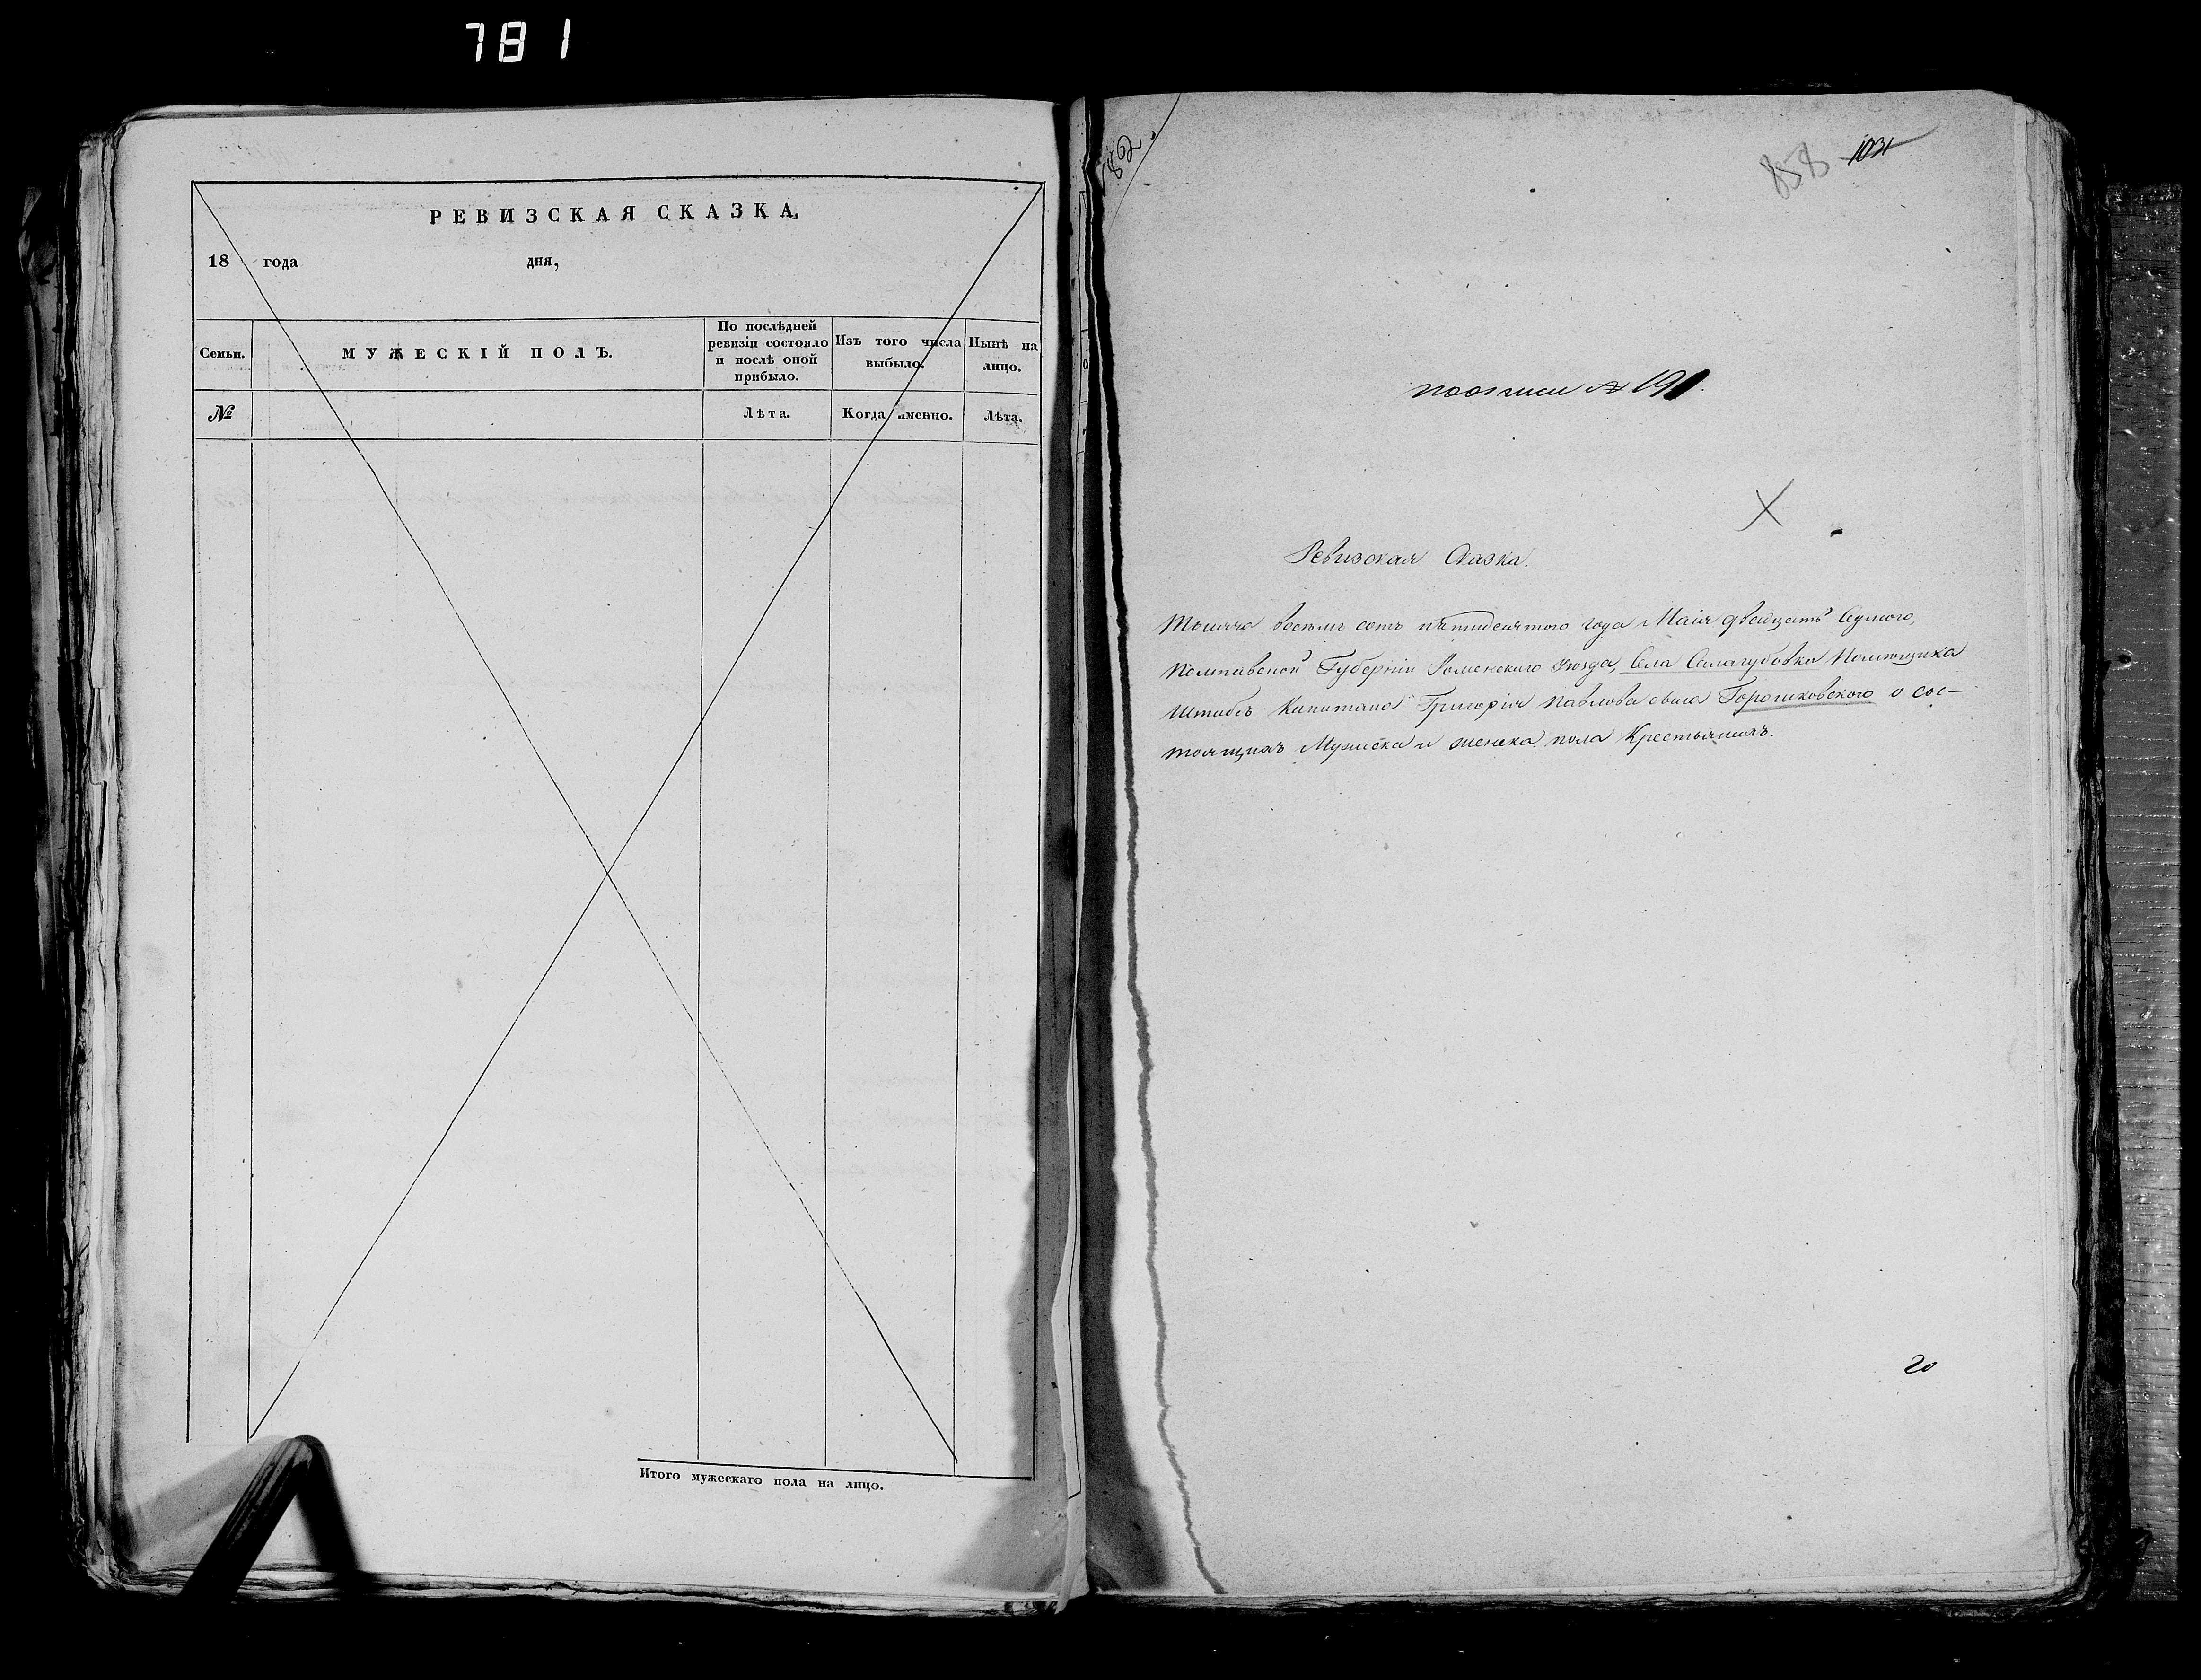 781
РЕВИЗСКАЯ СКАЗКА,
18 года дня,
Семьи.
МУЖЕСКІЙ ПОЛЪ.
По послѣдней
ревизіи состояло
и послѣ оной
прибыло.
Изъ того числа
выбыло.
Нынѣ на
лицо.
№
Лѣта.
Когда именно.
Лѣта.
Итого мужескаго пола на лицо.
862.
858 1031
по описи № 191.
Ревизская Сказка.
Тысяча восемь сотъ пятидесятого года Маія двадцать Седмого,
Полтавской Губерніи Роменского уѣзда, Села Салагубовки Помещика
Штабсъ Капитана Григорія Павлова сына Горошковского о сос-
тоящихъ Мужеска и женска пола Крестьянахъ.
20